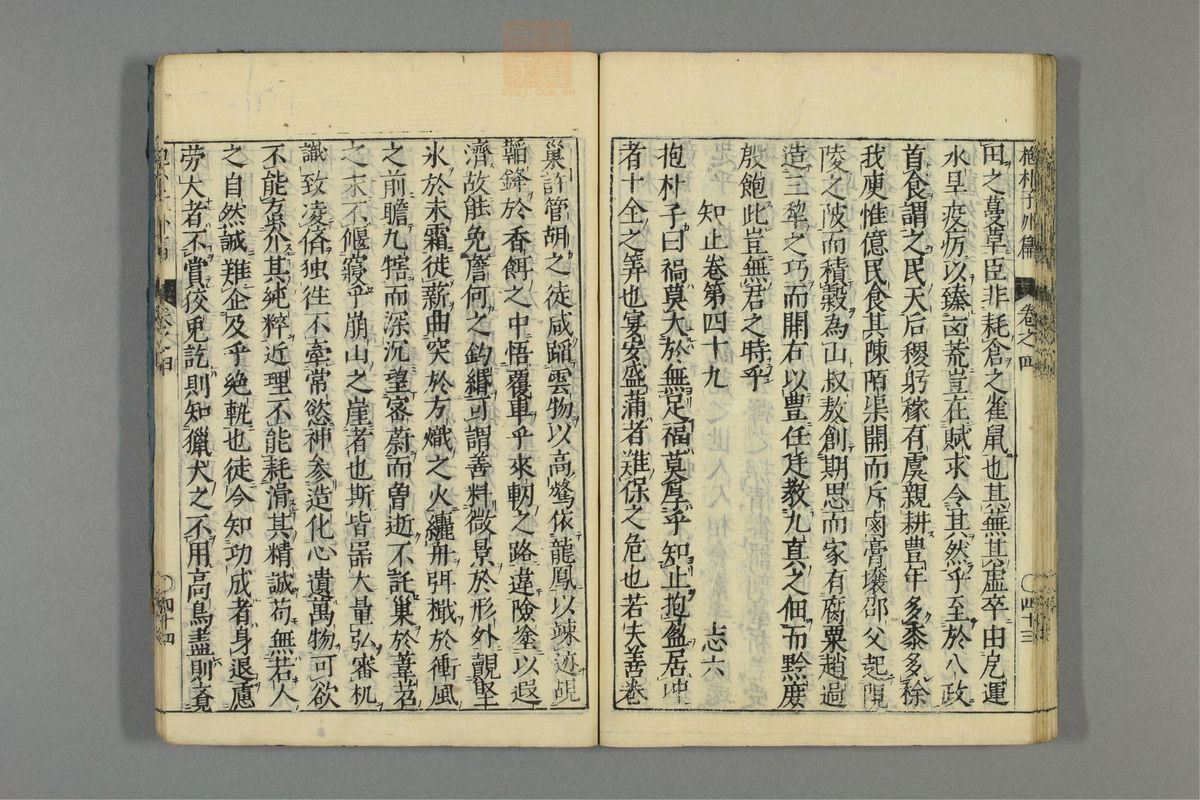 抱朴子外篇 卷之四 〇四十三
田之蔓草臣非耗倉之雀鼠也其無其盧卒由戹運
水旱疫厲以臻凶荒豈在賦求令其然乎至於八政
首食謂之民天后稷躬稼有虞親耕豊年多黍多稌
我庾惟億民食其陳陌渠開而斥鹵膏壤邵父起陽
陵之陂而積穀為山叔敖創期思而家有腐粟趙過
造三犂之巧而開右以豊任延教九真之佃而黔庶
殷飽此豈無君之時乎
知止卷第四十九 志六
抱朴子曰禍莫大於無足福莫厚乎知止抱盈居冲
者十全之筭也宴安盛蒲者難保之危也若夫善卷
巢許管胡之徒咸蹈雲物以高騖依龍鳳以竦迹覘
韜鋒於香餌之中悟覆車乎來軔之路違險塗以遐
濟故能免詹何之釣緡可謂善料微景於形外覿堅
氷於未霜徙薪曲突於方熾之火纚舟弭檝於衝風
之前瞻九犗而深沉望密蔚而曾逝不託巢於葦苕
之末不偃寢乎崩山之崖者也斯皆噐大量弘審机
識致凌儕独徃不牽常慾神参造化心遺萬物可欲
不能蔕芥其純粹近理不能耗滑其精誠苟無若人
之自然誠難企及乎绝軌也徒令知功成者身退慮
勞大者不賞狡兎訖則知獵犬之不用高鳥盡則覔
卷之四 〇四十四